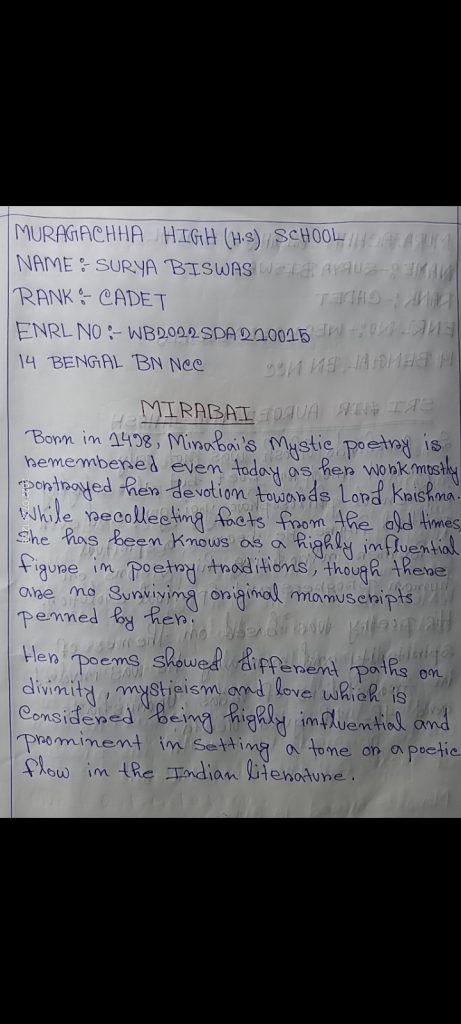 MURAGACHHA HIGH (H.S) SCHOOL
NAME :- SURYA BISWAS
RANK :- CADET
ENRL NO :- WB2022SDA210015
14 BENGAL BN NCC
MIRABAI
Born in 1498, Mirabai's Mystic poetry is
remembered even today as her work mostly
portrayed her devotion towards Lord Krishna.
While recollecting facts from the old times
She has been Knows as a highly influential
figure in poetry traditions, though there
are no Surviving original manuscripts
penned by her.
Her poems showed different paths on
divinity, mysticism and love which is
Considered being highly influential and
prominent in setting a tone or a poetic
flow in the Indian literature.